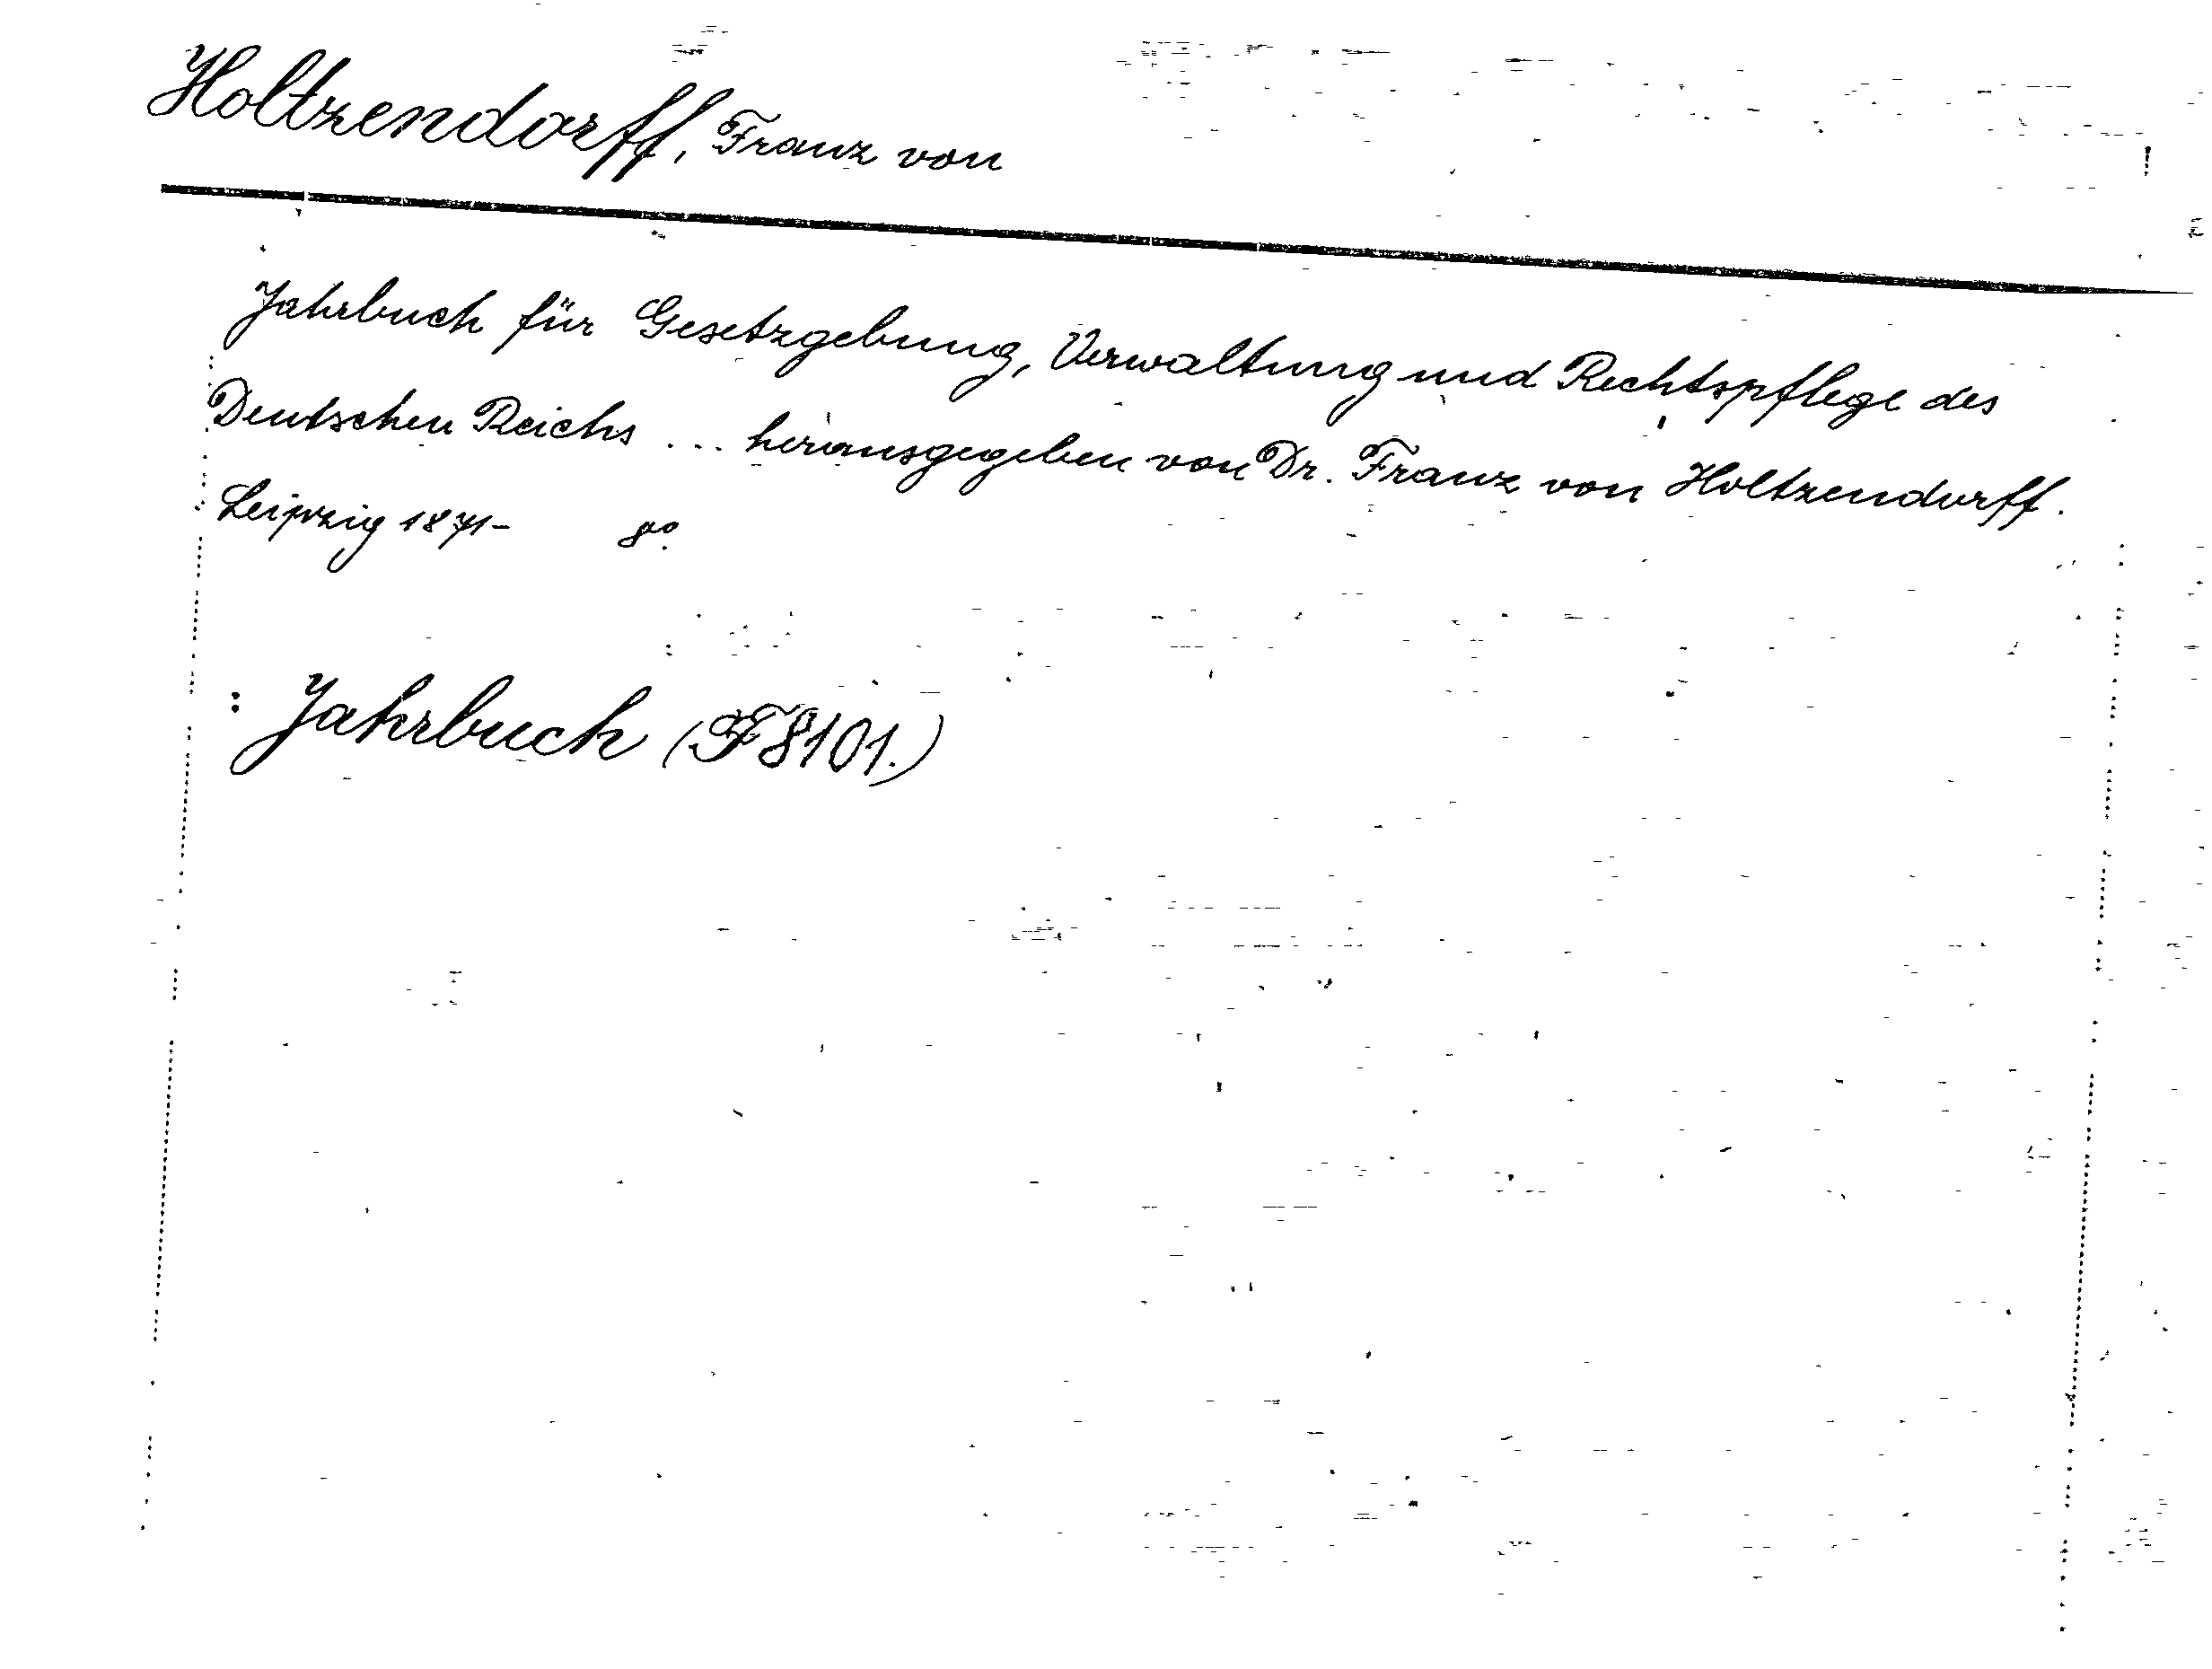 Holtzendorff, Franz von
Jahrbuch für Gesetzgebung, Verwaltung und Rechtspflege des
Deutschen Reichs ... herausgegeben von Dr. Franz von Holtzendorff.
Leipzig 1871- 8º.
: Jahrbuch (F 8101.)